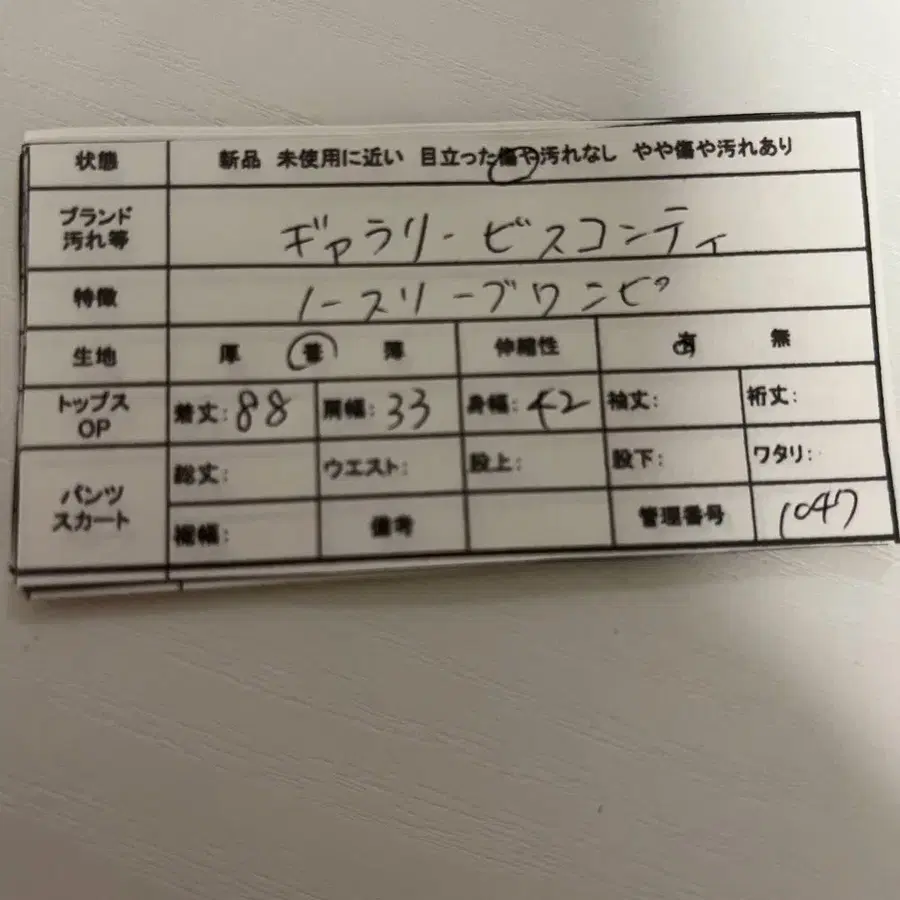 状態 新品 未使用に近い 目立った傷や汚れなし やや傷や汚れあり
ブランド
汚れ等 ギァラリービスコンティ
特徴 ノースリーブワンピ
生地 厚 普 薄 伸縮性 有 無
トップス
OP 着丈:88 肩幅:33 身幅:42 袖丈: 裄丈:
パンツ
スカート 総丈: ウエスト: 股上: 股下: ワタリ:
裾幅: 備考 管理番号 1047